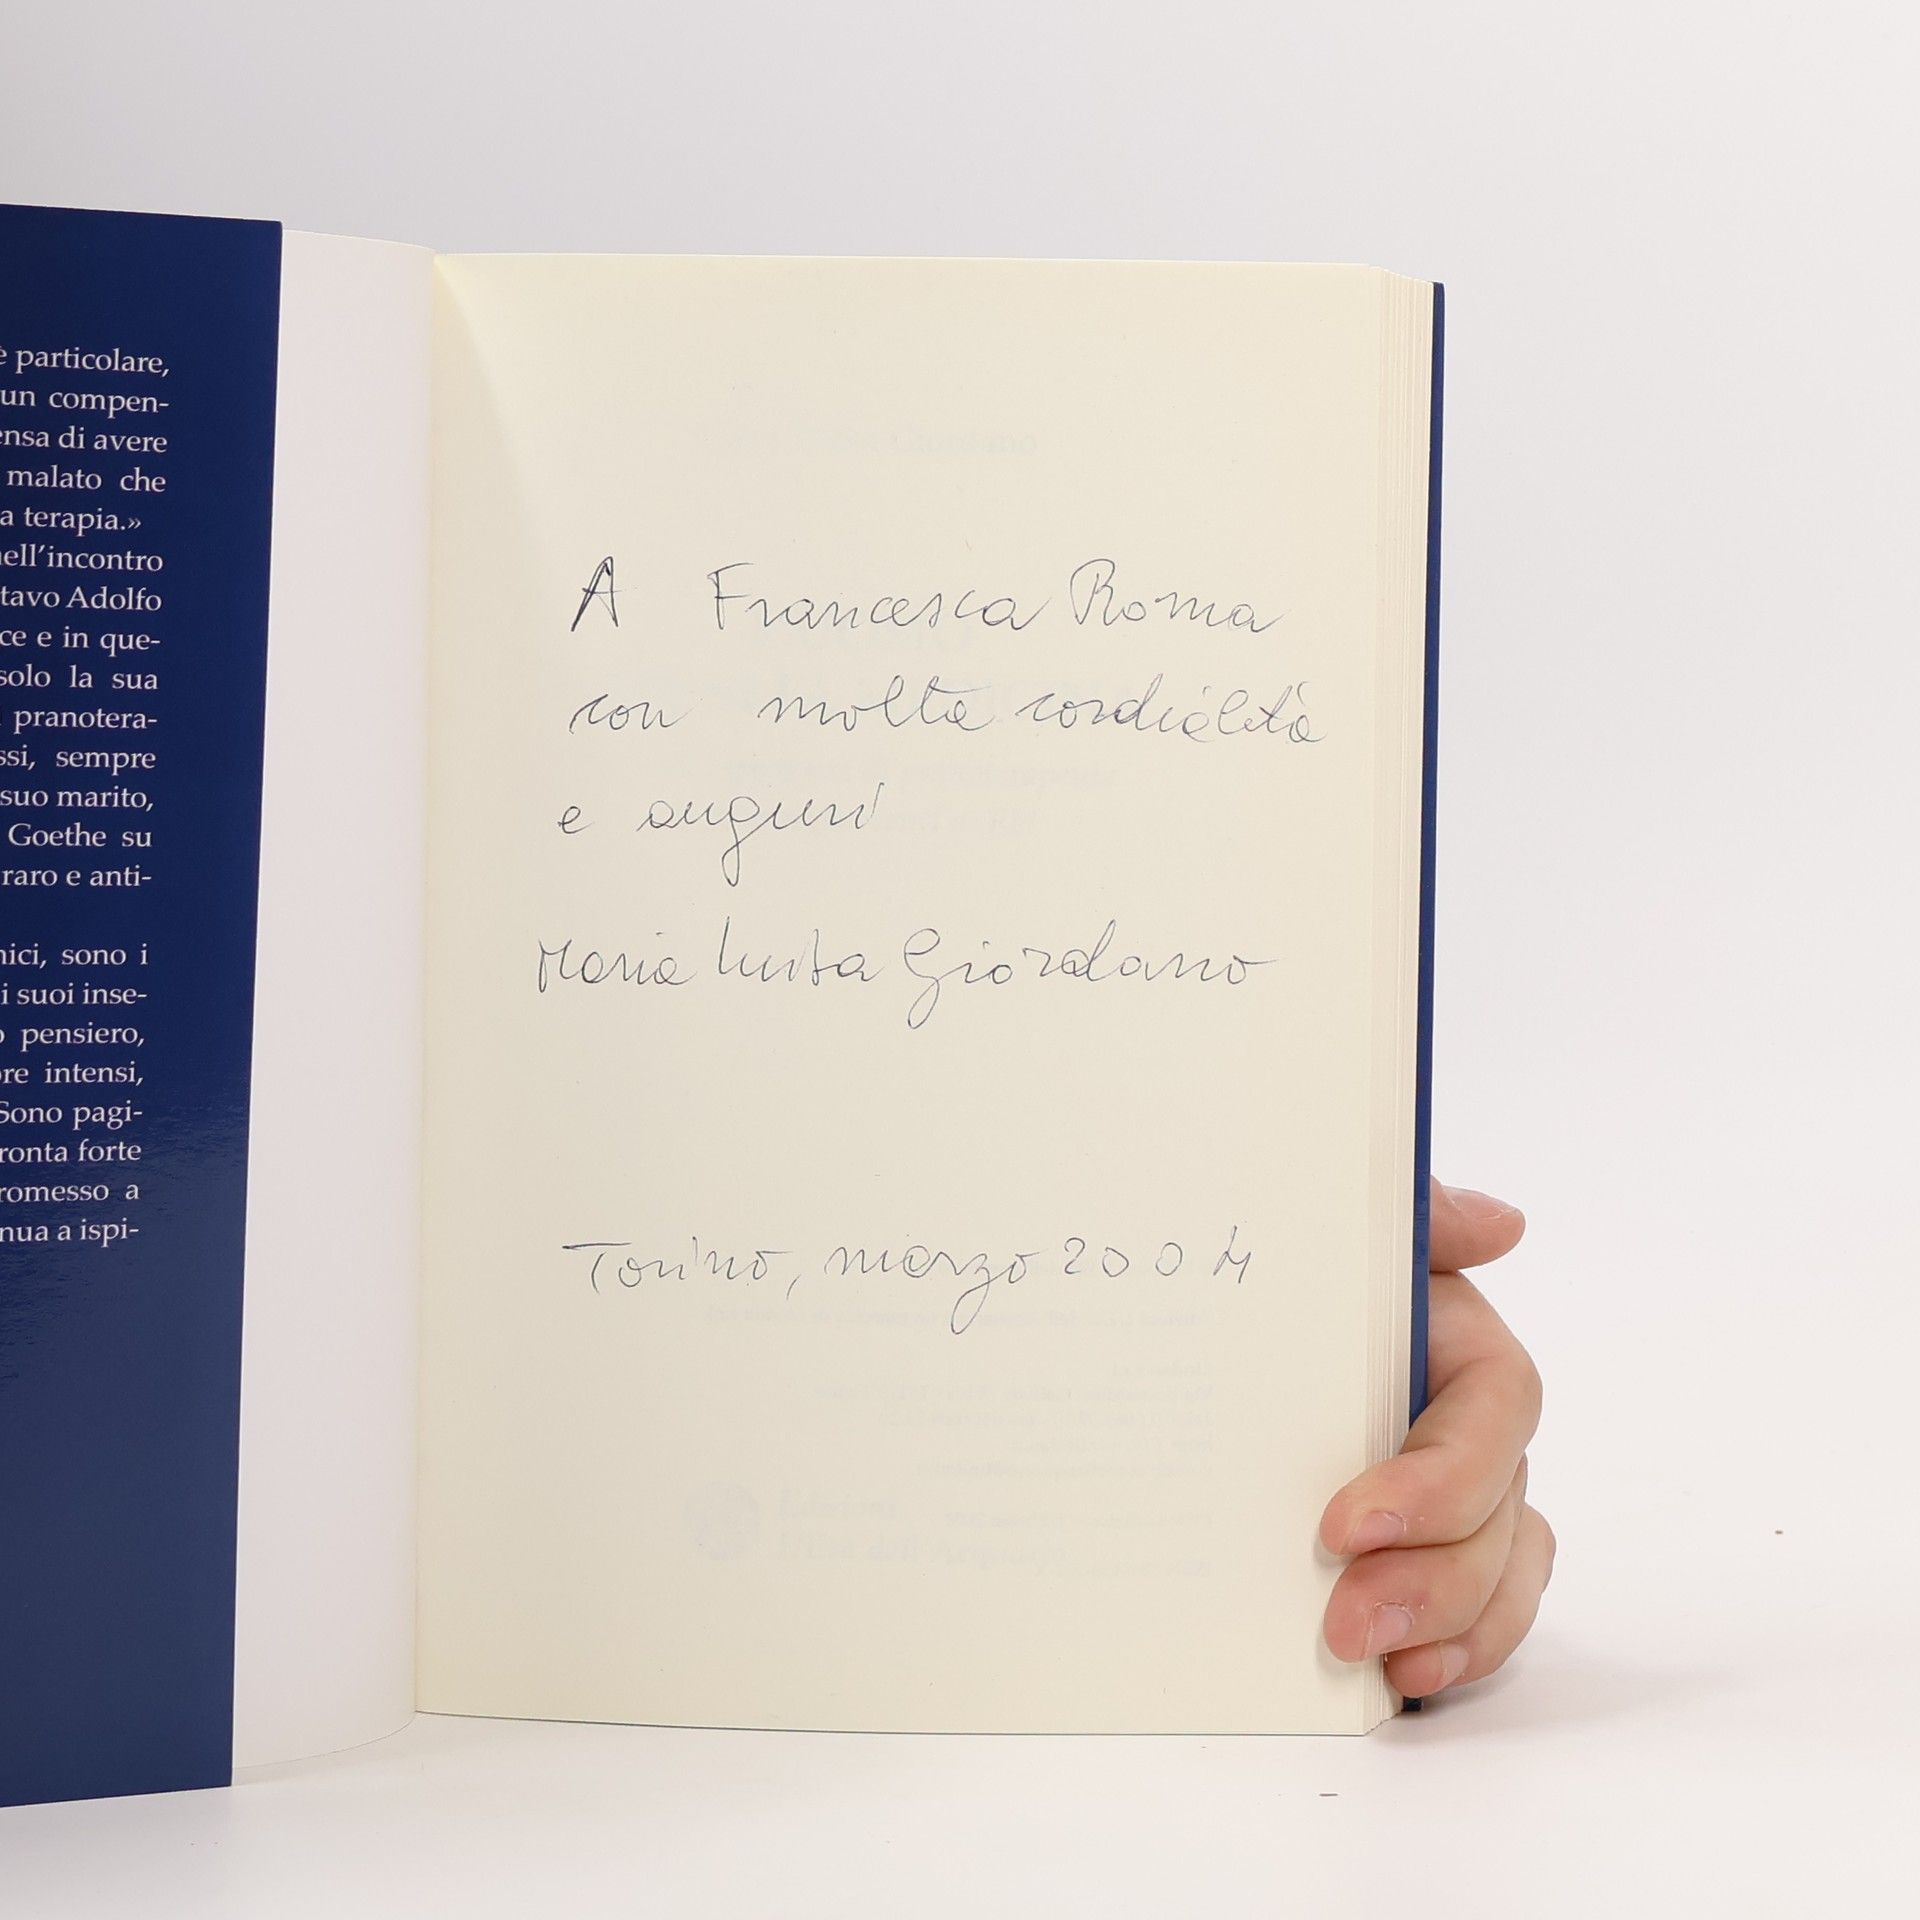 è particolare,
un compen-
ensa di avere
malato che
a terapia.»
nell'incontro
tavo Adolfo
ce e in que-
solo la sua
pranotera-
ssi, sempre
suo marito,
Goethe su
raro e anti-
nici, sono i
i suoi inse-
o pensiero,
ore intensi,
Sono pagi-
ronta forte
romesso a
nua a ispi-
A Francesca Roma
con molta cordialità
e auguri
Maria Luisa Giordano
Torino, marzo 2004